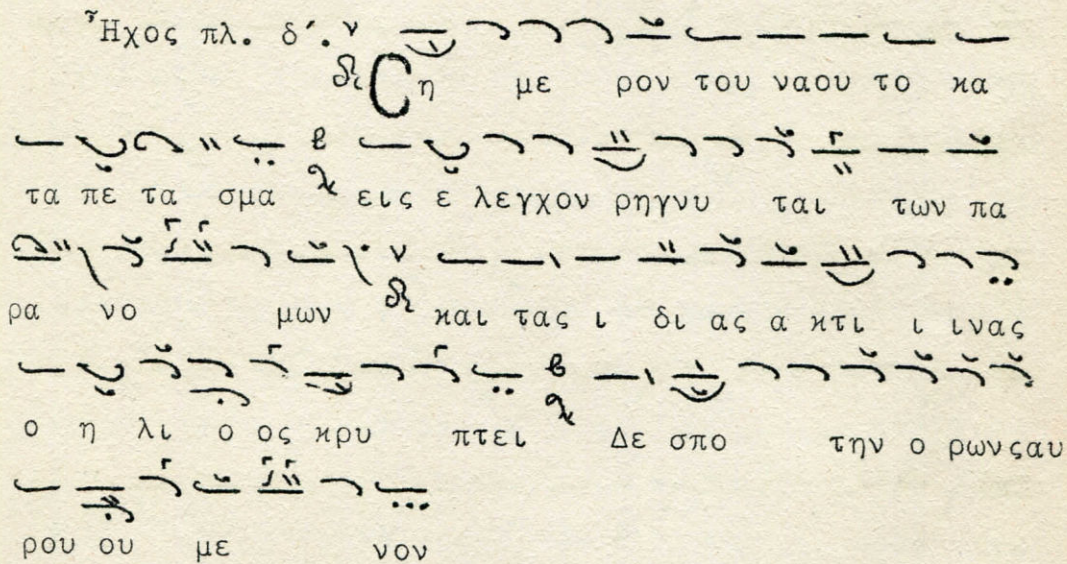 Ἦχος πλ. δ´.
Ϲη με ρον του ναου το κα
τα πε τα σμα εις ε λεγχον ρηγνυ ται των πα
ρα νο μων και τας ι δι ας α κτι ι ινας
ο η λι ο ος κρυ πτει Δε σπο την ο ρωνςαυ
ρου ου με νον